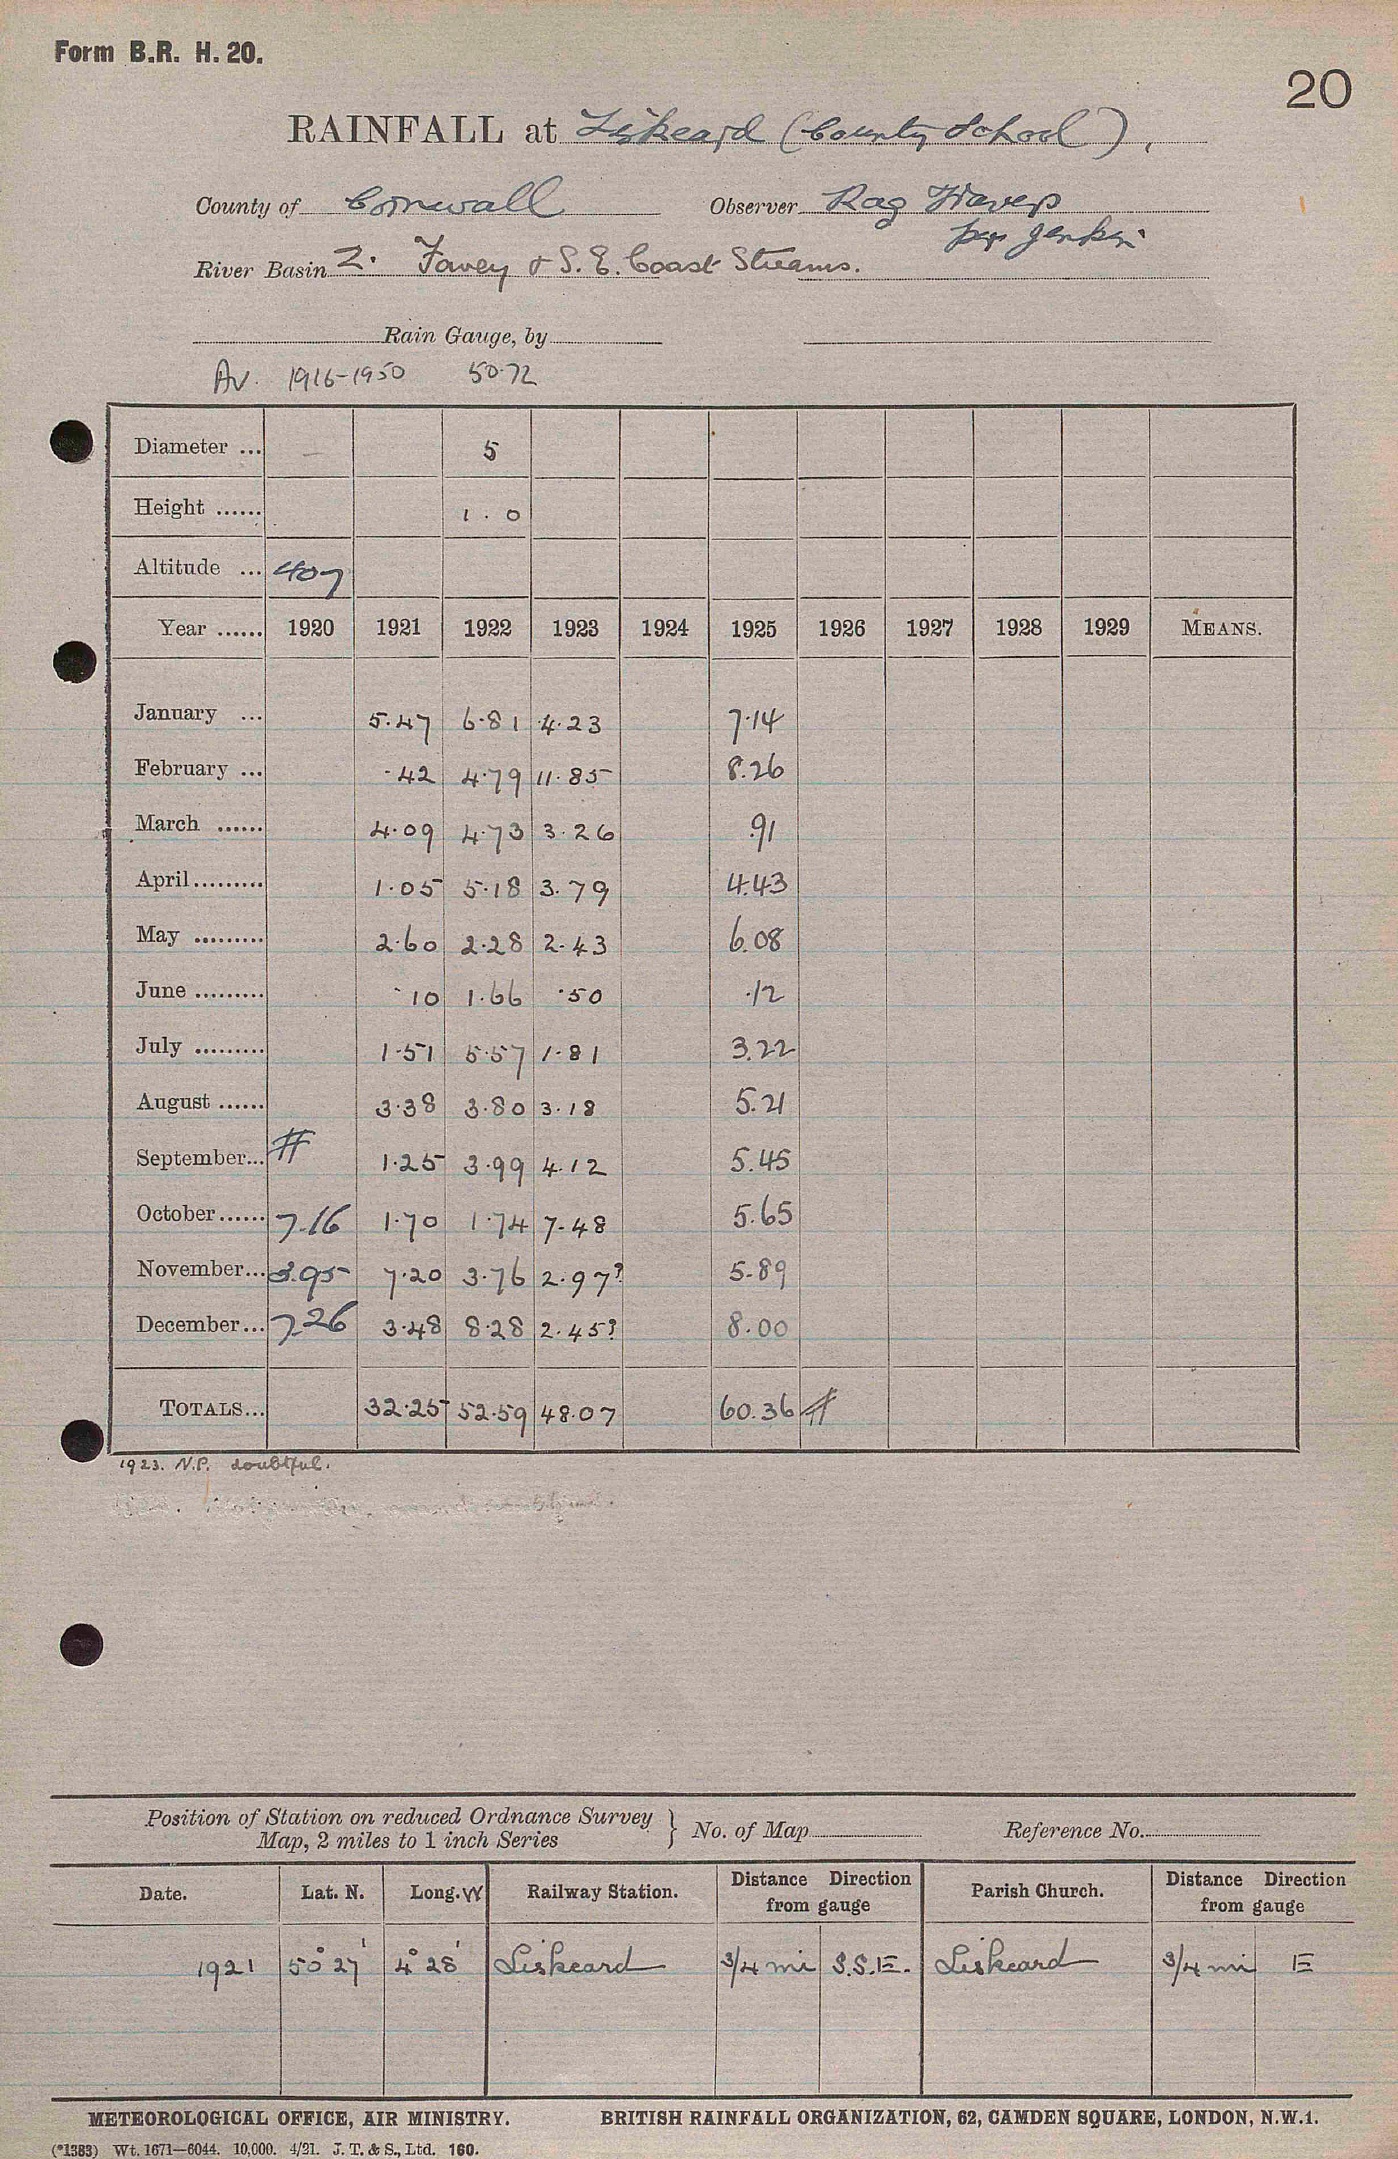 Form B.R. H. 20.
20
RAINFALL at Liskeard (County School),
County of Cornwall Observer
River Basin 2. Fowey & S.E. Coast Streams.
Rain Gauge, by
Av. 1916-1950 50.72
Diameter ... 5
Height ...... 1.0
Altitude ... 407
Year ...... 1920 1921 1922 1923 1924 1925 1926 1927 1928 1929 MEANS.
January ... 5.47 6.81 4.23 7.14
February ... .42 4.79 11.85 8.26
March ...... 4.09 4.73 3.26 .91
April......... 1.05 5.18 3.79 4.43
May ......... 2.60 2.28 2.43 6.08
June ......... .10 1.66 .50 .12
July ......... 1.51 5.57 1.81 3.22
August ...... 3.38 3.80 3.18 5.21
September... # 1.25 3.99 4.12 5.45
October...... 7.16 1.70 1.74 7.48 5.65
November... 3.95 7.20 3.76 2.97? 5.89
December... 7.26 3.48 8.28 2.45? 8.00
TOTALS... 32.25 52.59 48.07 60.36 #
1923. N.P. doubtful.
Position of Station on reduced Ordnance Survey
Map, 2 miles to 1 inch Series } No. of Map Reference No.
Date. Lat. N. Long. W Railway Station. Distance Direction from gauge Parish Church. Distance Direction from gauge
1921 50° 27' 4° 28' Liskeard 3/4 mi S.S.E. Liskeard 3/4 mi E
METEOROLOGICAL OFFICE, AIR MINISTRY. BRITISH RAINFALL ORGANIZATION, 62, CAMDEN SQUARE, LONDON, N.W.1.
(*1383) Wt. 1671—6044. 10,000. 4/21. J. T. & S., Ltd. 160.